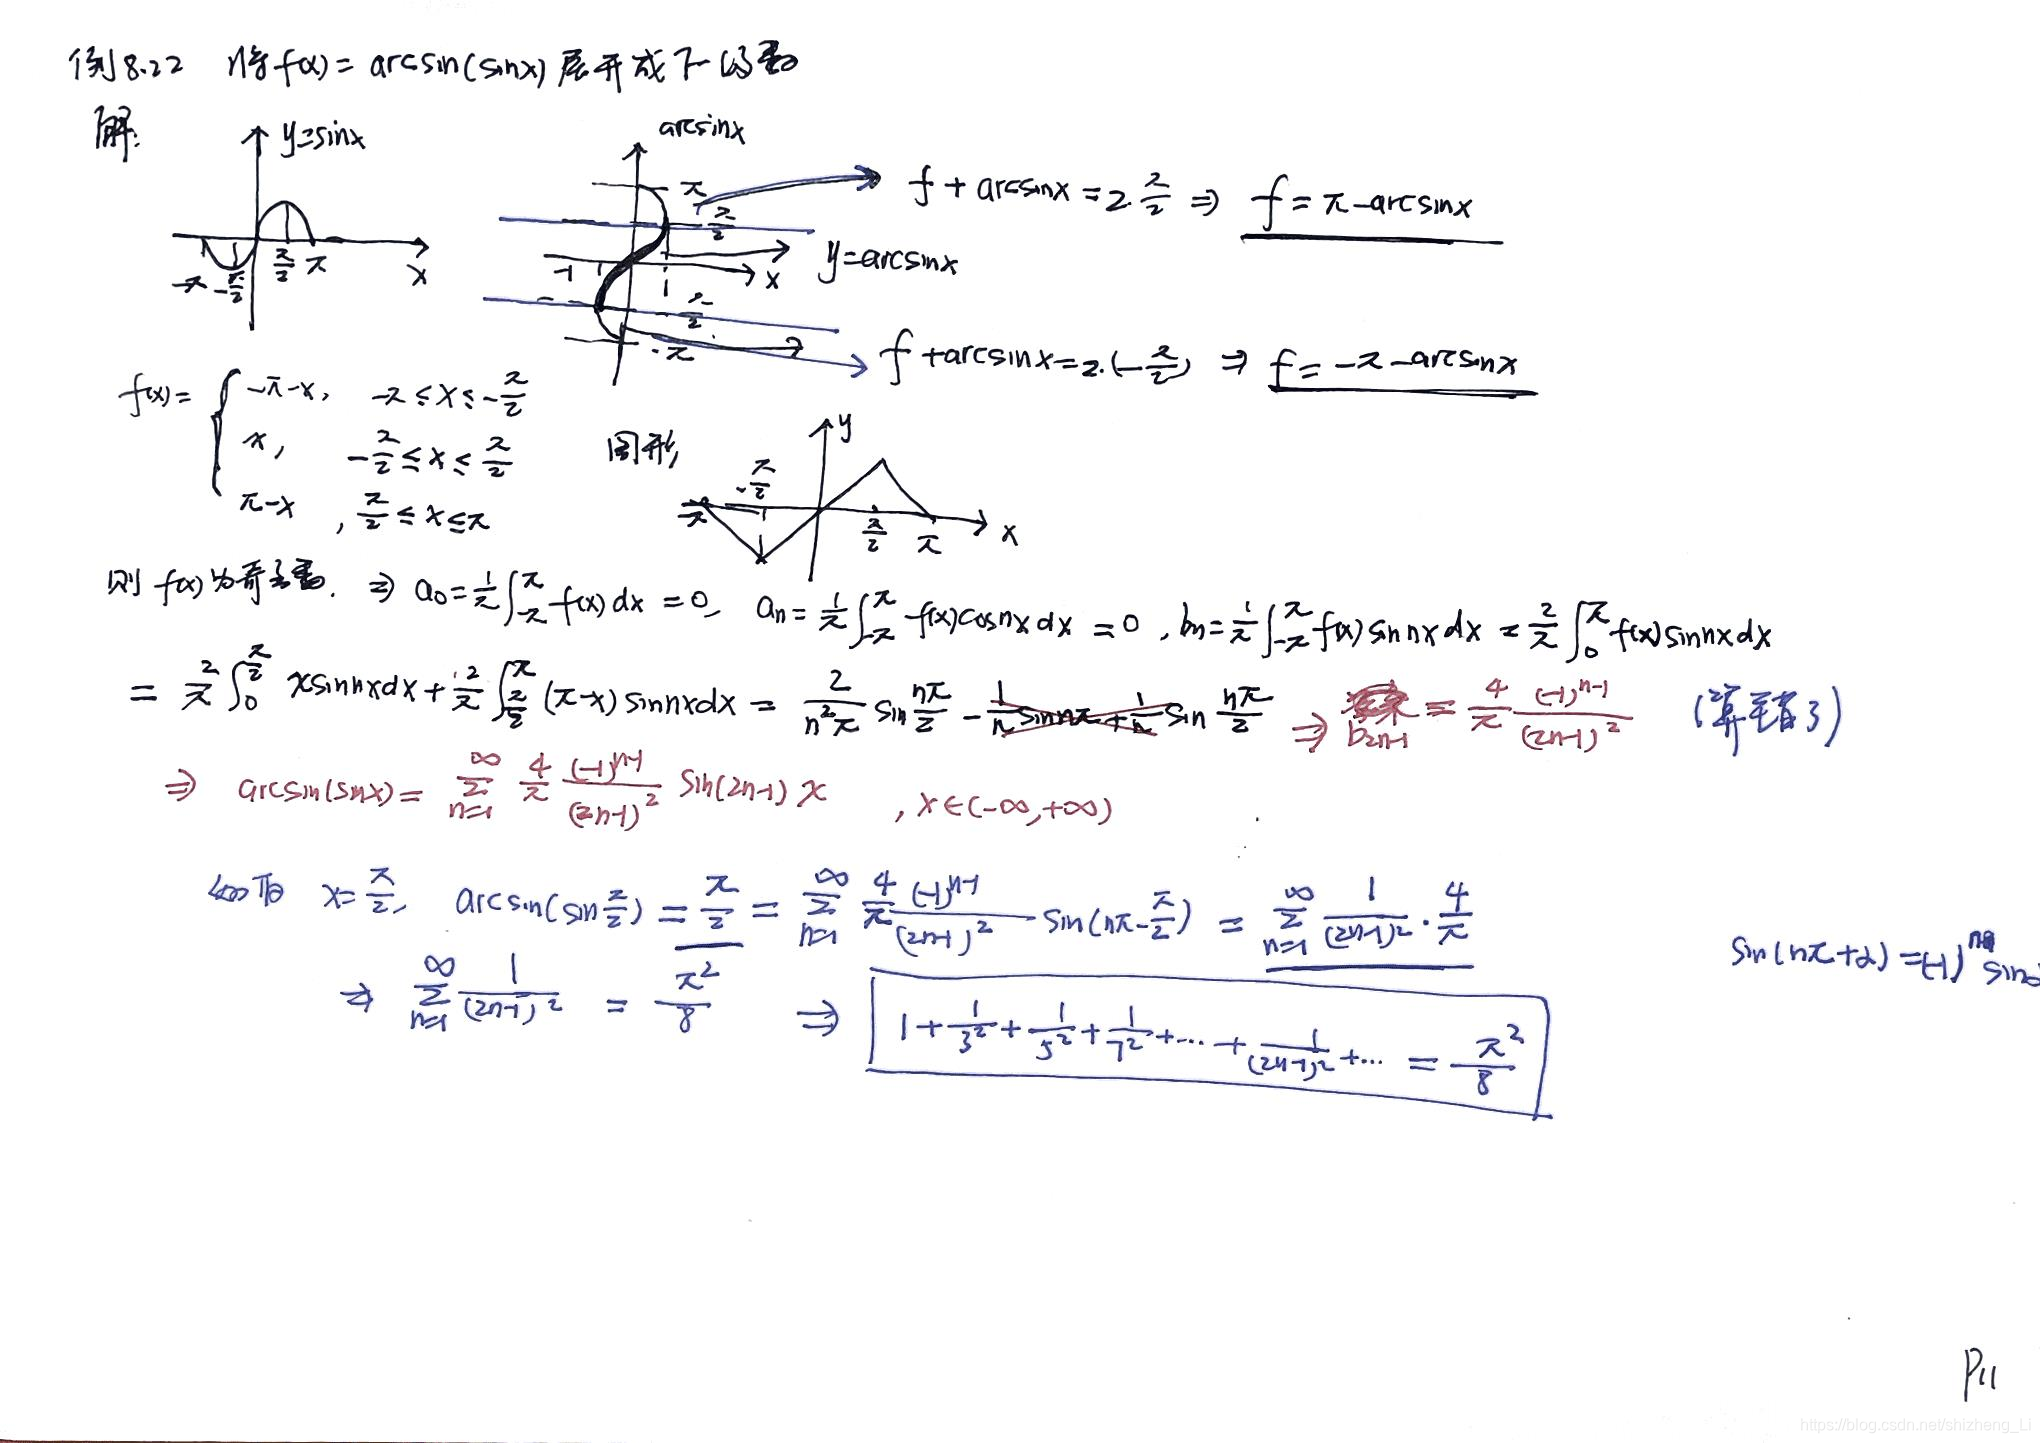 例8.22 将f(x)=arcsin(sinx)展开成F-级数
解:
y=sinx
x
-π -π/2 π/2 π
arcsinx
π
π/2
y=arcsinx
-1 1 x
-π/2
-π
f+arcsinx=2·π/2 ⇒ f=π-arcsinx
f+arcsinx=2·(-π/2) ⇒ f=-π-arcsinx
f(x)= { -π-x, -π≤x≤-π/2
x, -π/2≤x≤π/2
π-x, π/2≤x≤π
图形,
y
-π -π/2 π/2 π x
则 f(x)为奇函数. ⇒ a₀=1/π∫_{-π}^{π} f(x)dx=0, aₙ=1/π∫_{-π}^{π} f(x)cosnxdx=0, bₙ=1/π∫_{-π}^{π} f(x)sinnxdx=2/π∫_0^π f(x)sinnxdx
=2/π∫_0^{π/2} xsinnxdx+2/π∫_{π/2}^{π}(π-x)sinnxdx=2/(n²π) sin nπ/2 - 1/n sinnπ+1/n sin nπ/2 ⇒ b_{2n-1}=4/π (-1)^{n-1}/(2n-1)² (算错了)
⇒ arcsin(sinx)=∑_{n=1}^{∞} 4/π (-1)^{n-1}/(2n-1)² sin(2n-1)x , x∈(-∞,+∞)
x=π/2, arcsin(sinπ/2)=π/2=∑_{n=1}^{∞} 4/π (-1)^{n-1}/(2n-1)² sin(nπ-π/2)=∑_{n=1}^{∞} 1/(2n-1)²·4/π
sin(nπ+α)=(-1)ⁿsinα
⇒ ∑_{n=1}^{∞} 1/(2n-1)²=π²/8 ⇒ 1+1/3²+1/5²+1/7²+...+1/(2n-1)²+...=π²/8
P11
https://blog.csdn.net/shizheng_Li